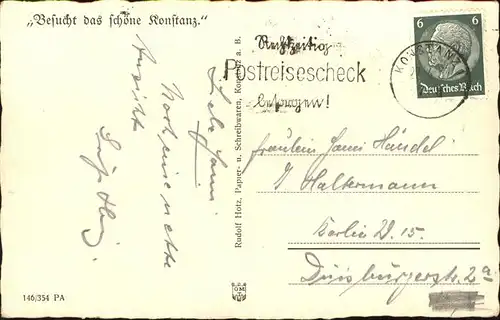 „Besucht das schöne Konstanz."
Rechtzeitig
Postreisescheck
besorgen!
KONSTANZ
6 6
Deutsches Reich
Liebe Hanni
Noch eine nette
Ansicht
Rudolf Hotz, Papier- u. Schreibwaren, Konstanz a. B.
Fräulein Hanni Händel
Haltermann
Berlin W. 15.
Duisburgerstr. 2a
146/354 PA